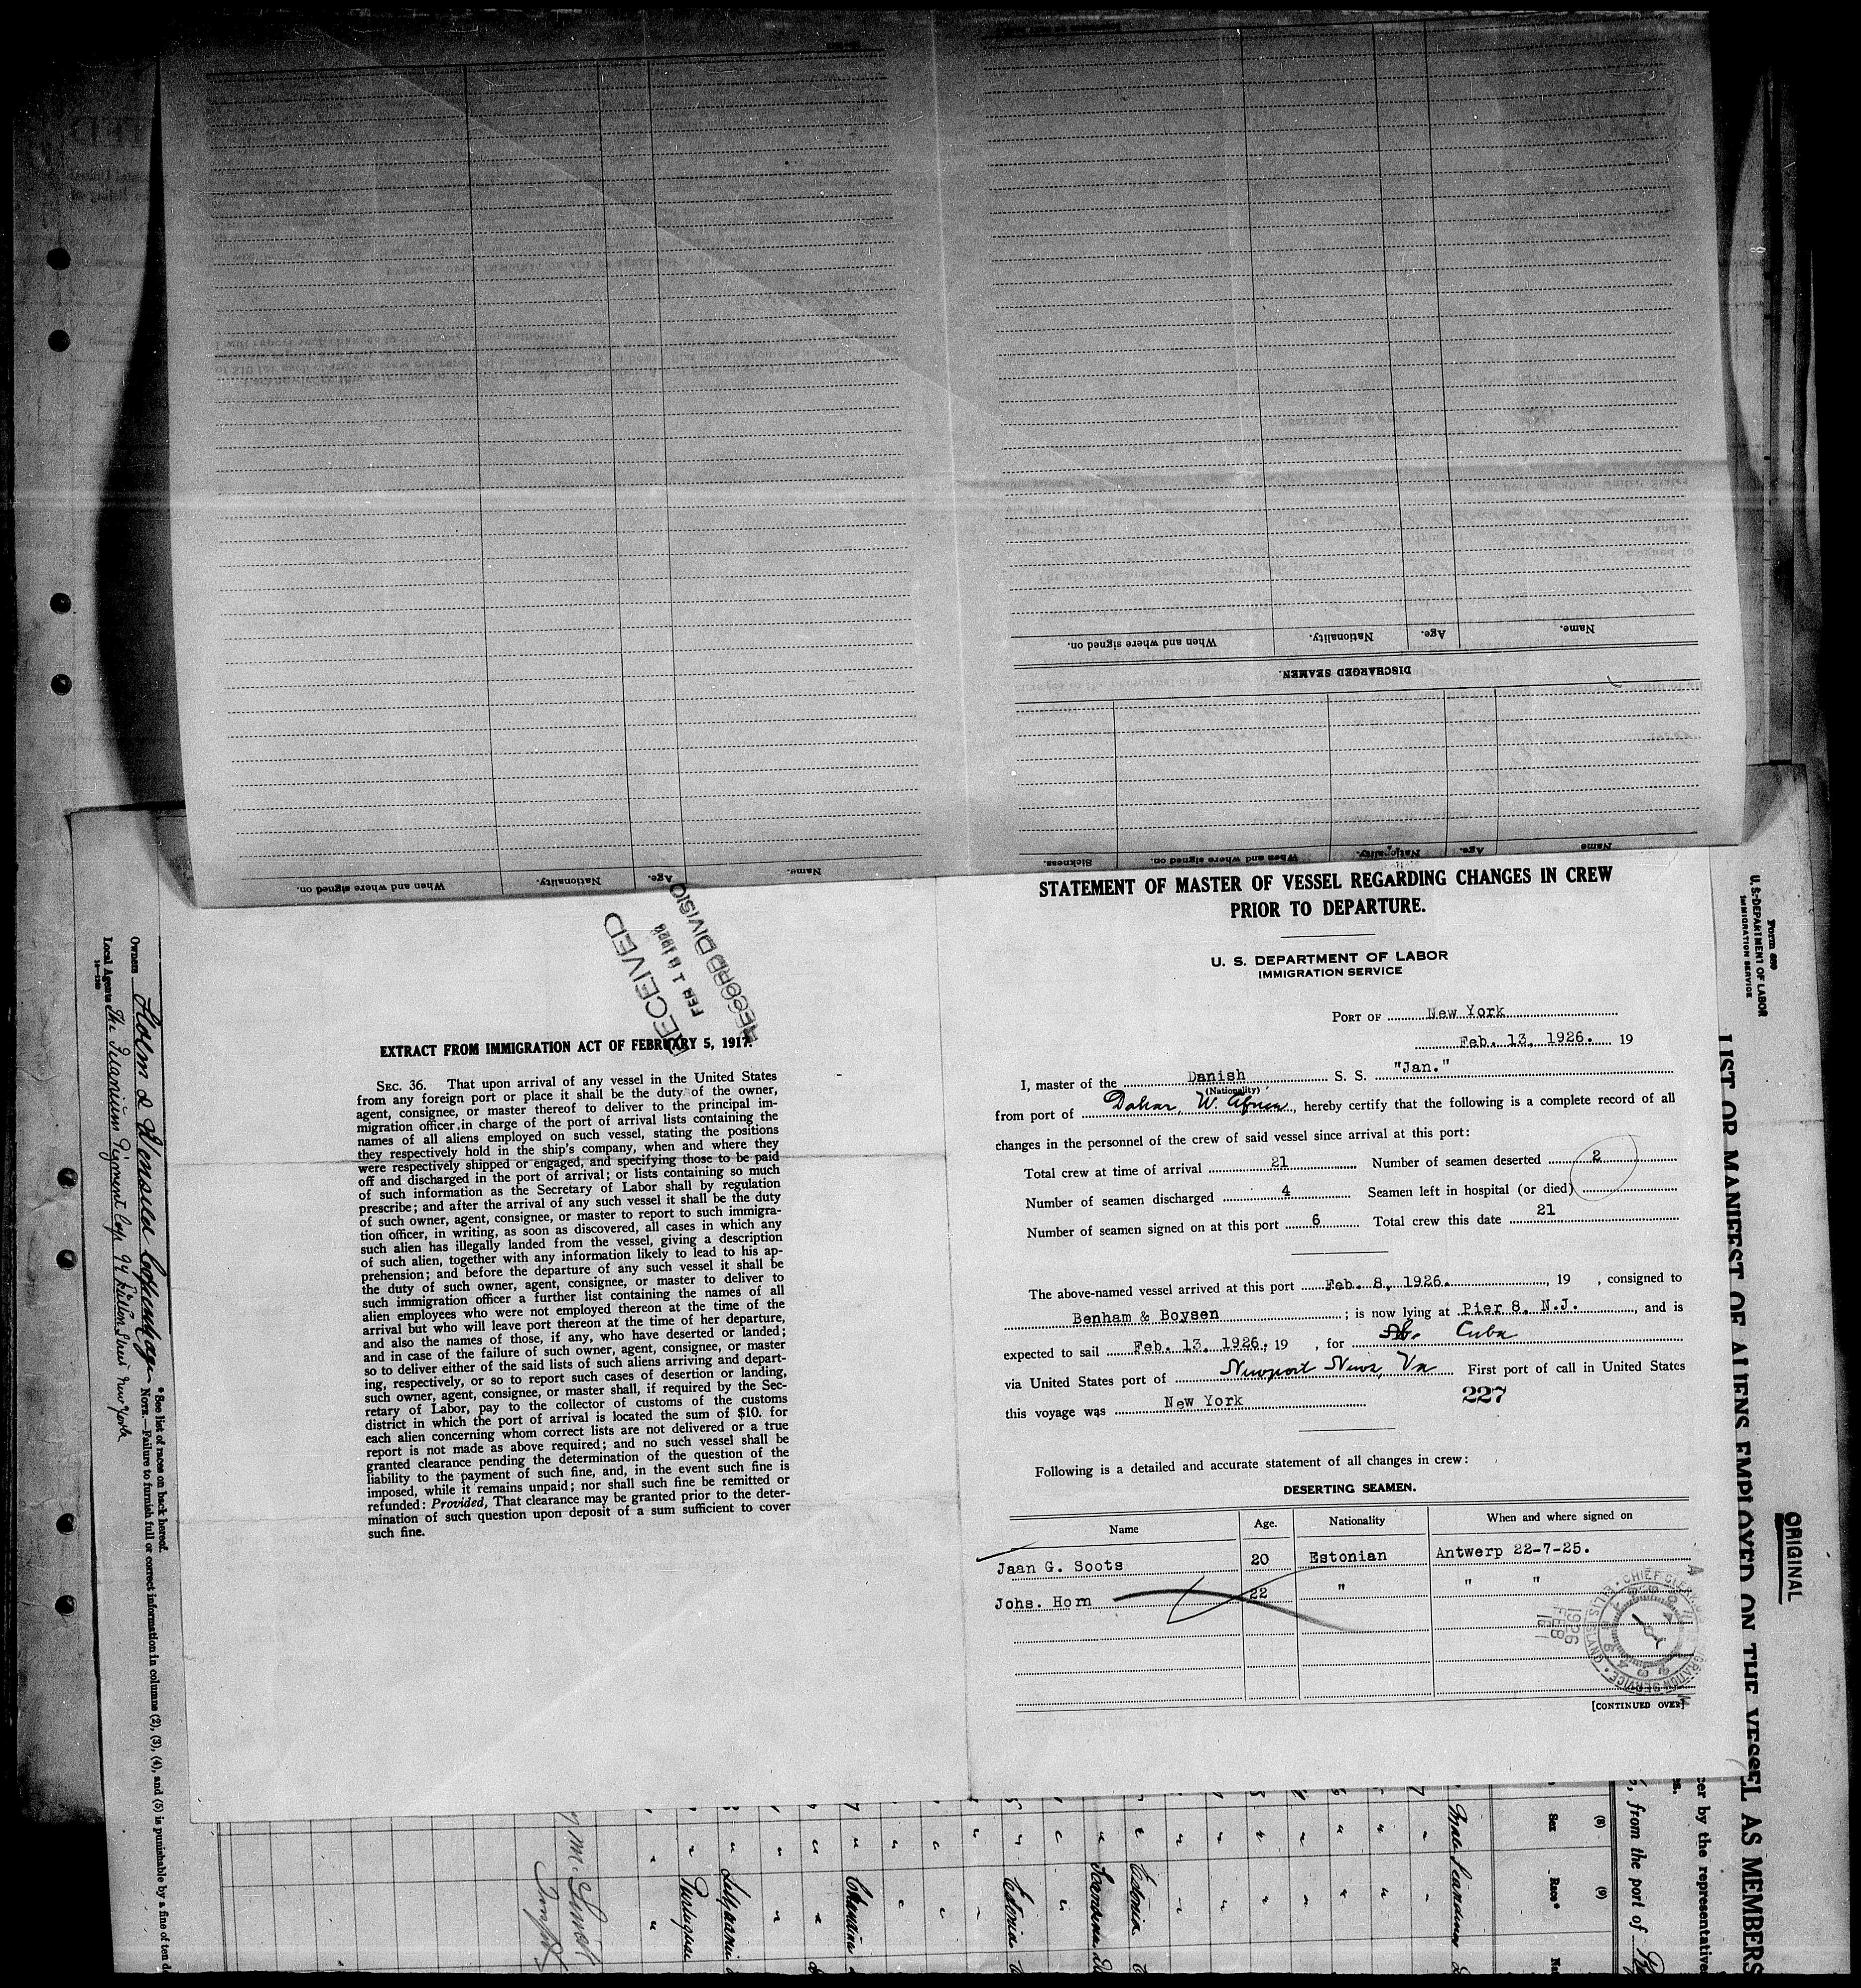 When and where signed on.
Nationality.
Age.
Name.
When and where signed on.
Nationality.
Age.
Name.
DISCHARGED SEAMEN.
Sickness.
When and where signed on.
Nationality.
Age.
Name
RECEIVED
RECORD DIVISIO
EXTRACT FROM IMMIGRATION ACT OF FEBRUARY 5, 1917.
SEC. 36. That upon arrival of any vessel in the United States
from any foreign port or place it shall be the duty of the owner,
agent, consignee, or master thereof to deliver to the principal im-
migration officer in charge of the port of arrival lists containing the
names of all aliens employed on such vessel, stating the positions
they respectively hold in the ship's company, when and where they
were respectively shipped or engaged, and specifying those to be paid
off and discharged in the port of arrival; or lists containing so much
of such information as the Secretary of Labor shall by regulation
prescribe; and after the arrival of any such vessel it shall be the duty
of such owner, agent, consignee, or master to report to such immigra-
tion officer, in writing, as soon as discovered, all cases in which any
such alien has illegally landed from the vessel, giving a description
of such alien, together with any information likely to lead to his ap-
prehension; and before the departure of any such vessel it shall be
the duty of such owner, agent, consignee, or master to deliver to
such immigration officer a further list containing the names of all
alien employees who were not employed thereon at the time of the
arrival but who will leave port thereon at the time of her departure,
and also the names of those, if any, who have deserted or landed;
and in case of the failure of such owner, agent, consignee, or master
so to deliver either of the said lists of such aliens arriving and depart-
ing, respectively, or so to report such cases of desertion or landing,
such owner, agent, consignee, or master shall, if required by the Sec-
retary of Labor, pay to the collector of customs of the customs
district in which the port of arrival is located the sum of $10. for
each alien concerning whom correct lists are not delivered or a true
report is not made as above required; and no such vessel shall be
granted clearance pending the determination of the question of the
liability to the payment of such fine, and, in the event such fine is
imposed, while it remains unpaid; nor shall such fine be remitted or
refunded: Provided, That clearance may be granted prior to the deter-
mination of such question upon deposit of a sum sufficient to cover
such fine.
STATEMENT OF MASTER OF VESSEL REGARDING CHANGES IN CREW
PRIOR TO DEPARTURE.
U. S. DEPARTMENT OF LABOR
IMMIGRATION SERVICE
PORT OF New York
Feb. 13, 1926. 19
I, master of the Danish S. S. "Jan."
(Nationality)
from port of Dakar, W. Africa, hereby certify that the following is a complete record of all
changes in the personnel of the crew of said vessel since arrival at this port:
Total crew at time of arrival 21 Number of seamen deserted 2
Number of seamen discharged 4 Seamen left in hospital (or died)
Number of seamen signed on at this port 6 Total crew this date 21
The above-named vessel arrived at this port Feb. 8, 1926. , 19 , consigned to
Benham & Boysen ; is now lying at Pier 8, N.J. , and is
expected to sail Feb. 13, 1926. 19 , for Cuba
via United States port of Newport News, Va First port of call in United States
this voyage was New York 227
Following is a detailed and accurate statement of all changes in crew:
DESERTING SEAMEN.
Name Age. Nationality When and where signed on
Jaan G. Soots 20 Estonian Antwerp 22-7-25.
Johs. Horn 22 " " "
[CONTINUED OVER]
Form 689
U. S. DEPARTMENT OF LABOR
IMMIGRATION SERVICE
ORIGINAL
LIST OR MANIFEST OF ALIENS EMPLOYED ON THE VESSEL AS MEMBERS
cer by the representative
, from the port of
(8) (9)
Sex Race*
Male
Estonia
Estonia
Portuguese
Owners
Local Agents The Titanium Pigment Corp. 94 Fulton Street New York
* See list of races on back hereof.
NOTE.—Failure to furnish full or correct information in columns (2), (3), (4), and (5) is punishable by a fine of ten